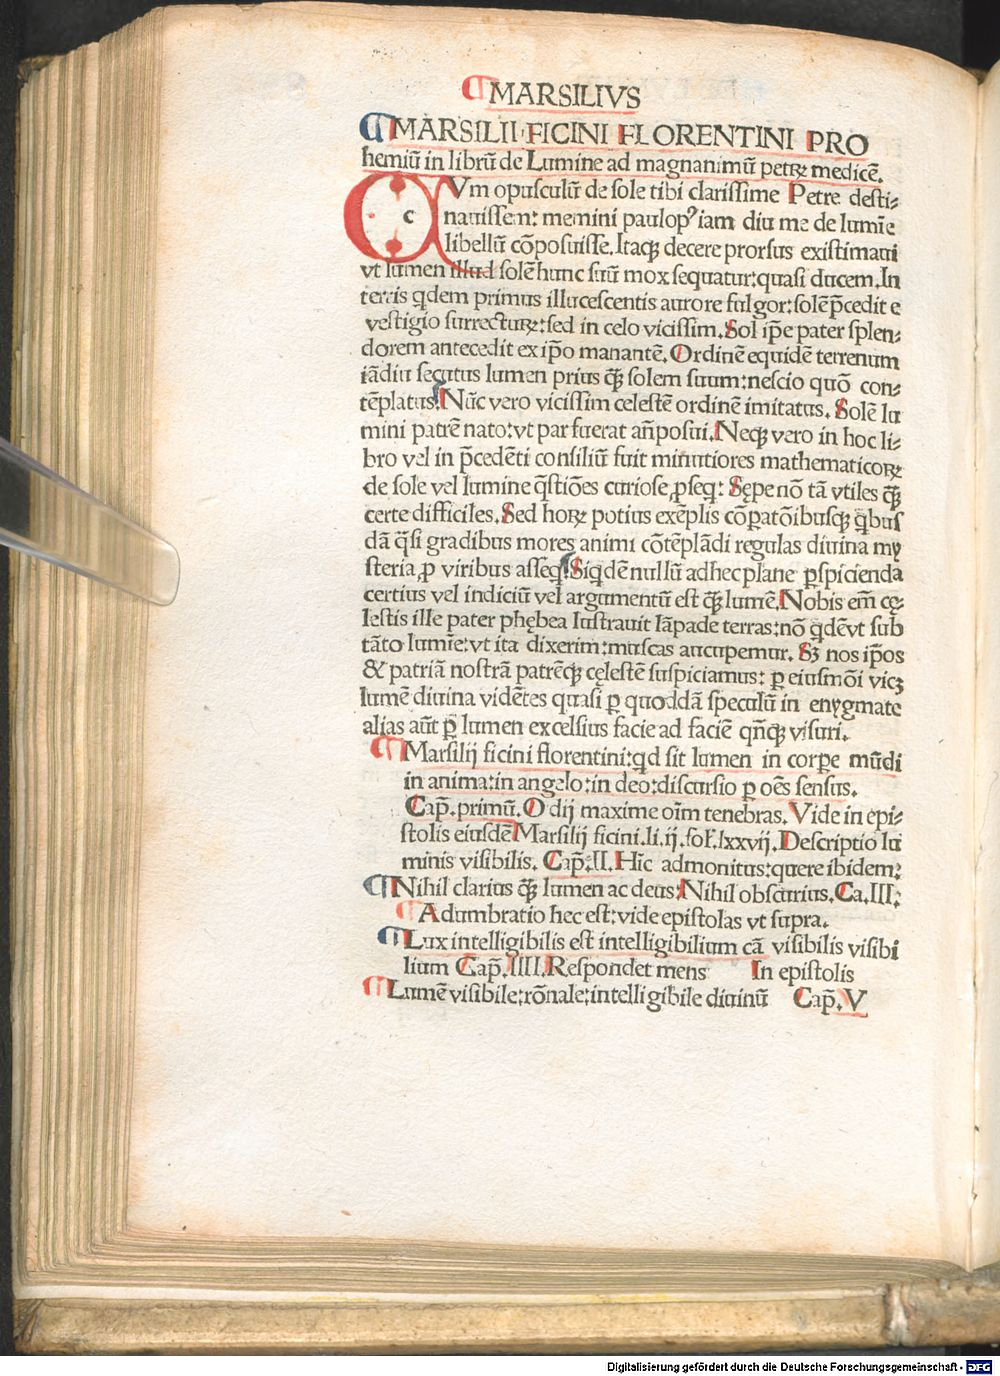 MARSILIVS
MARSILII FICINI FLORENTINI PRO
hemiū in librū de Lumine ad magnanimū petrꝝ medicē.
Cum opuſculū de ſole tibi clariſſime Petre deſti⸗
nauiſſem: memini paulop⁹ iam diu me de lumīe
libellū cōpoſuiſſe. Itaqꝫ decere prorſus exiſtimaui
vt lumen illud ſolē hunc ſuū mox ſequatur: quaſi ducem. In
terris qdem primus illuceſcentis aurore fulgor: ſolē p̄cedit e
veſtigio ſurrecturꝝ: ſed in celo viciſſim. Sol ip̄e pater ſplen⸗
dorem antecedit ex ip̄o manantē. Ordinē equidē terrenum
iādiu ſecutus lumen prius qꝫ̄ ſolem ſuum: neſcio quō con⸗
tēplatus. Nūc vero viciſſim celeſtē ordinē imitatus. Solē lu
mini patrē nato: vt par fuerat an̄poſui. Neqꝫ vero in hoc li⸗
bro vel in p̄cedēti conſiliū fuit minutiores mathematicorꝝ
de ſole vel lumine q̄ſtiōes curioſe ꝓſeq: Sępe nō tā vtiles qꝫ̄
certe difficiles. Sed horꝝ potius exēplis cōꝑatōibuſqꝫ qbuſ
dā q̄ſi gradibus mores animi cōtēplādi regulas diuina my
ſteria ꝓ viribus aſſeq. Siqdē nullū adhec plane ꝑſpicienda
certius vel indiciū vel argumentū eſt qꝫ̄ lumē. Nobis em̄ cę⸗
leſtis ille pater phębea luſtrauit lāpade terras: nō qdē vt ſub
tāto lumīe: vt ita dixerim: muſcas aucupemur. Sꝫ nos ip̄os
& patriā noſtrā patrēqꝫ cęleſtē ſuſpiciamus: ꝑ eiuſmōi vicꝫ
lumē diuina vidētes quaſi ꝑ quoddā ſpeculū in enygmate
alias aūt ꝑ lumen excelſius facie ad faciē qn̄qꝫ viſuri.
Marſilij ficini florentini: qd ſit lumen in corꝑe mūdi
in anima: in angelo: in deo: diſcurſio ꝑ oēs ſenſus.
Cap̄. primū. O dij maxime oīm tenebras. Vide in epi⸗
ſtolis eiuſdē Marſilij ficini. li. ij. fol. lxxvij. Deſcriptio lu
minis viſibilis. Cap̄. II. Hīc admonitus: quere ibidem:
Nihil clarius qꝫ̄ lumen ac deus: Nihil obſcurius. Ca. III:
Adumbratio hec eſt: vide epiſtolas vt ſupra.
Lux intelligibilis eſt intelligibilium cā viſibilis viſibi
lium Cap̄. IIII. Reſpondet mens In epiſtolis
Lumē viſibile: rōnale: intelligibile diuinū Cap̄. V
Digitalisierung gefördert durch die Deutsche Forschungsgemeinschaft - DFG